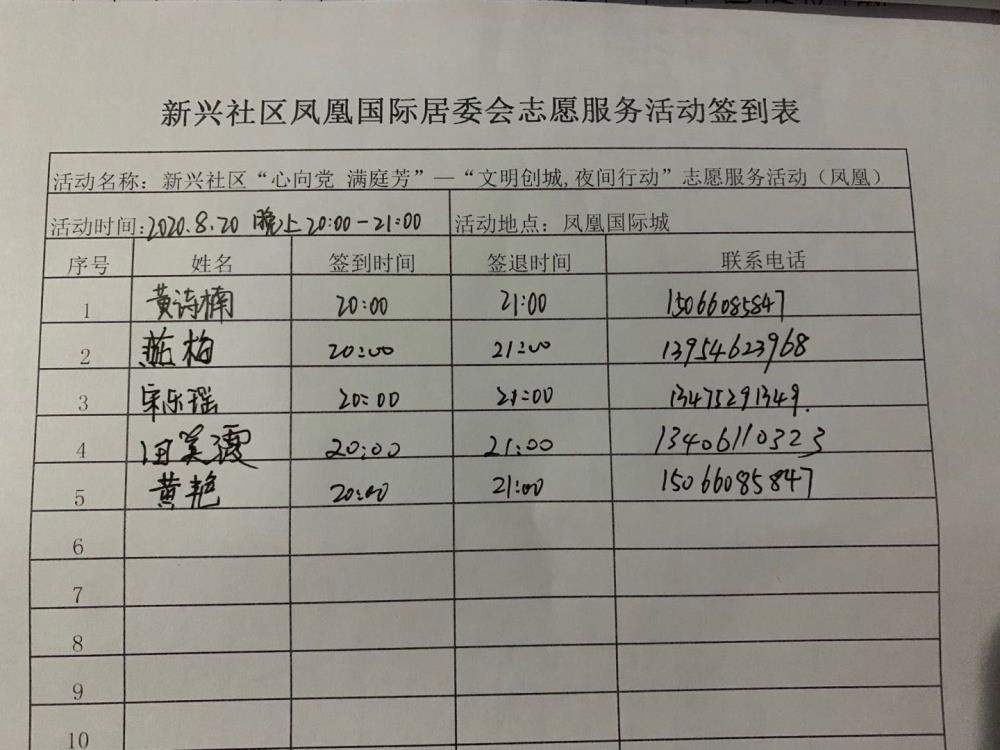 新兴社区凤凰国际居委会志愿服务活动签到表
活动名称：新兴社区“心向党 满庭芳”—“文明创城,夜间行动”志愿服务活动（凤凰）
活动时间:2020.8.20 晚上20:00-21:00 活动地点：凤凰国际城
序号 姓名 签到时间 签退时间 联系电话
1 黄诗楠 20:00 21:00 15066085847
2 梅 20:00 21:00 13954623968
3 宋乐瑶 20:00 21:00 13475291349.
4 田美霞 20:00 21:00 13406110323
5 黄艳 20:00 21:00 15066085847
6
7
8
9
10